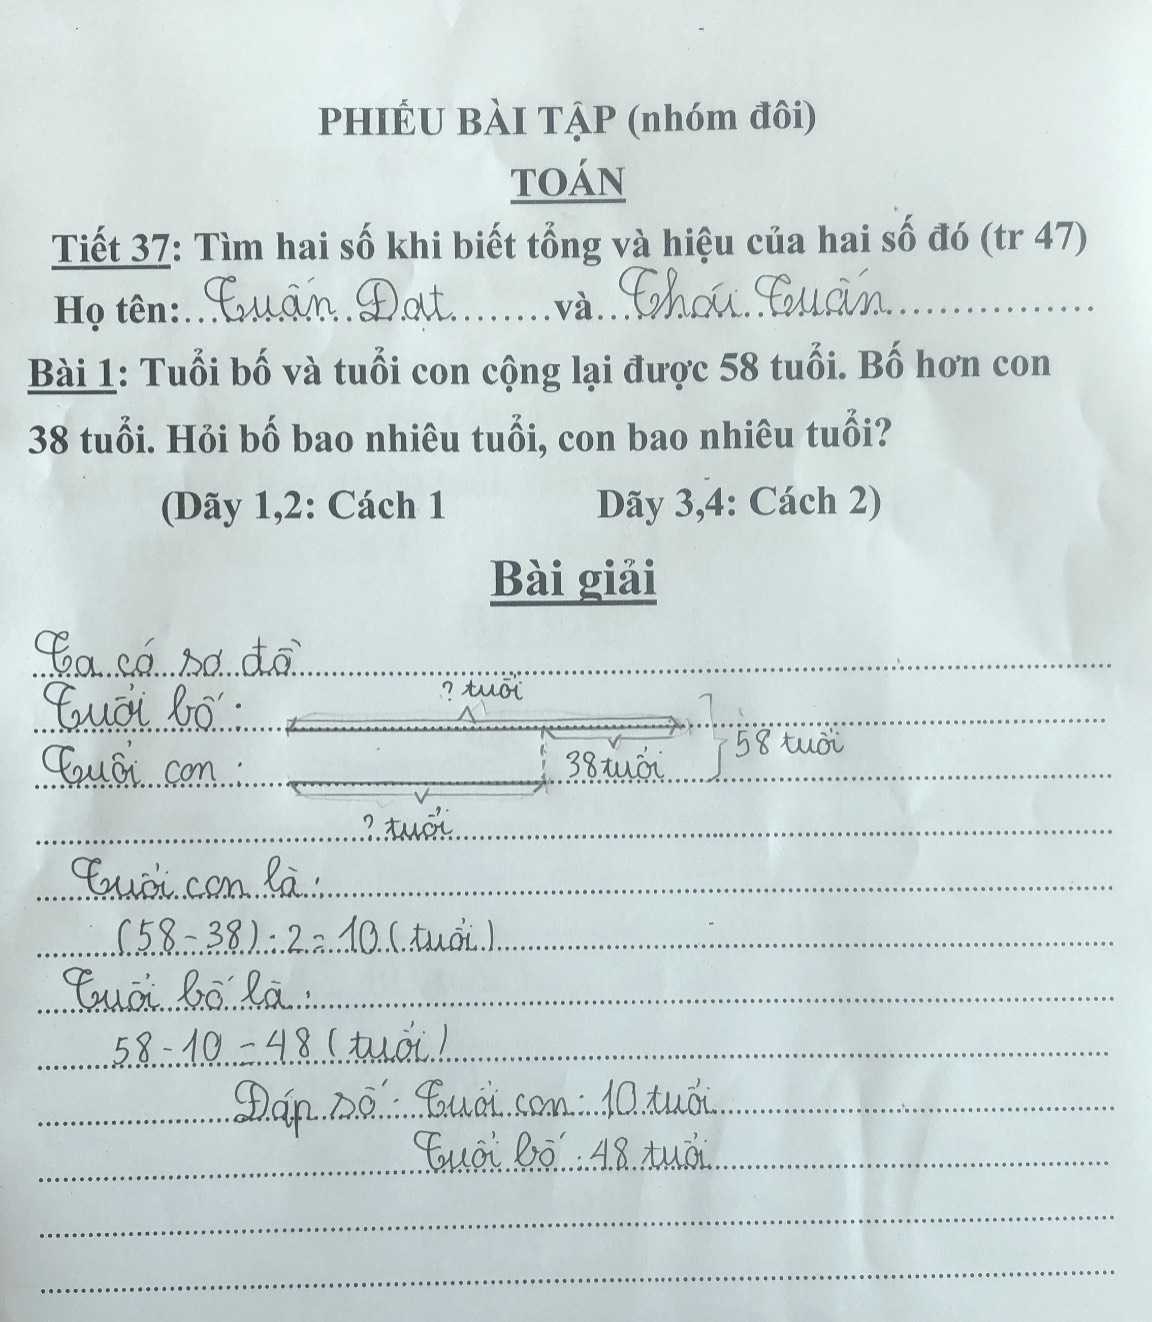 PHIẾU BÀI TẬP (nhóm đôi)
TOÁN
Tiết 37: Tìm hai số khi biết tổng và hiệu của hai số đó (tr 47)
Họ tên:...Tuấn Đạt........và...Thái Tuấn................
Bài 1: Tuổi bố và tuổi con cộng lại được 58 tuổi. Bố hơn con
38 tuổi. Hỏi bố bao nhiêu tuổi, con bao nhiêu tuổi?
(Dãy 1,2: Cách 1 Dãy 3,4: Cách 2)
Bài giải
Ta có sơ đồ
? tuổi
Tuổi bố:
58 tuổi
Tuổi con:
38 tuổi
? tuổi
Tuổi con là:
(58-38):2=10(tuổi)
Tuổi bố là:
58-10=48(tuổi)
Đáp số: Tuổi con: 10 tuổi
Tuổi bố: 48 tuổi